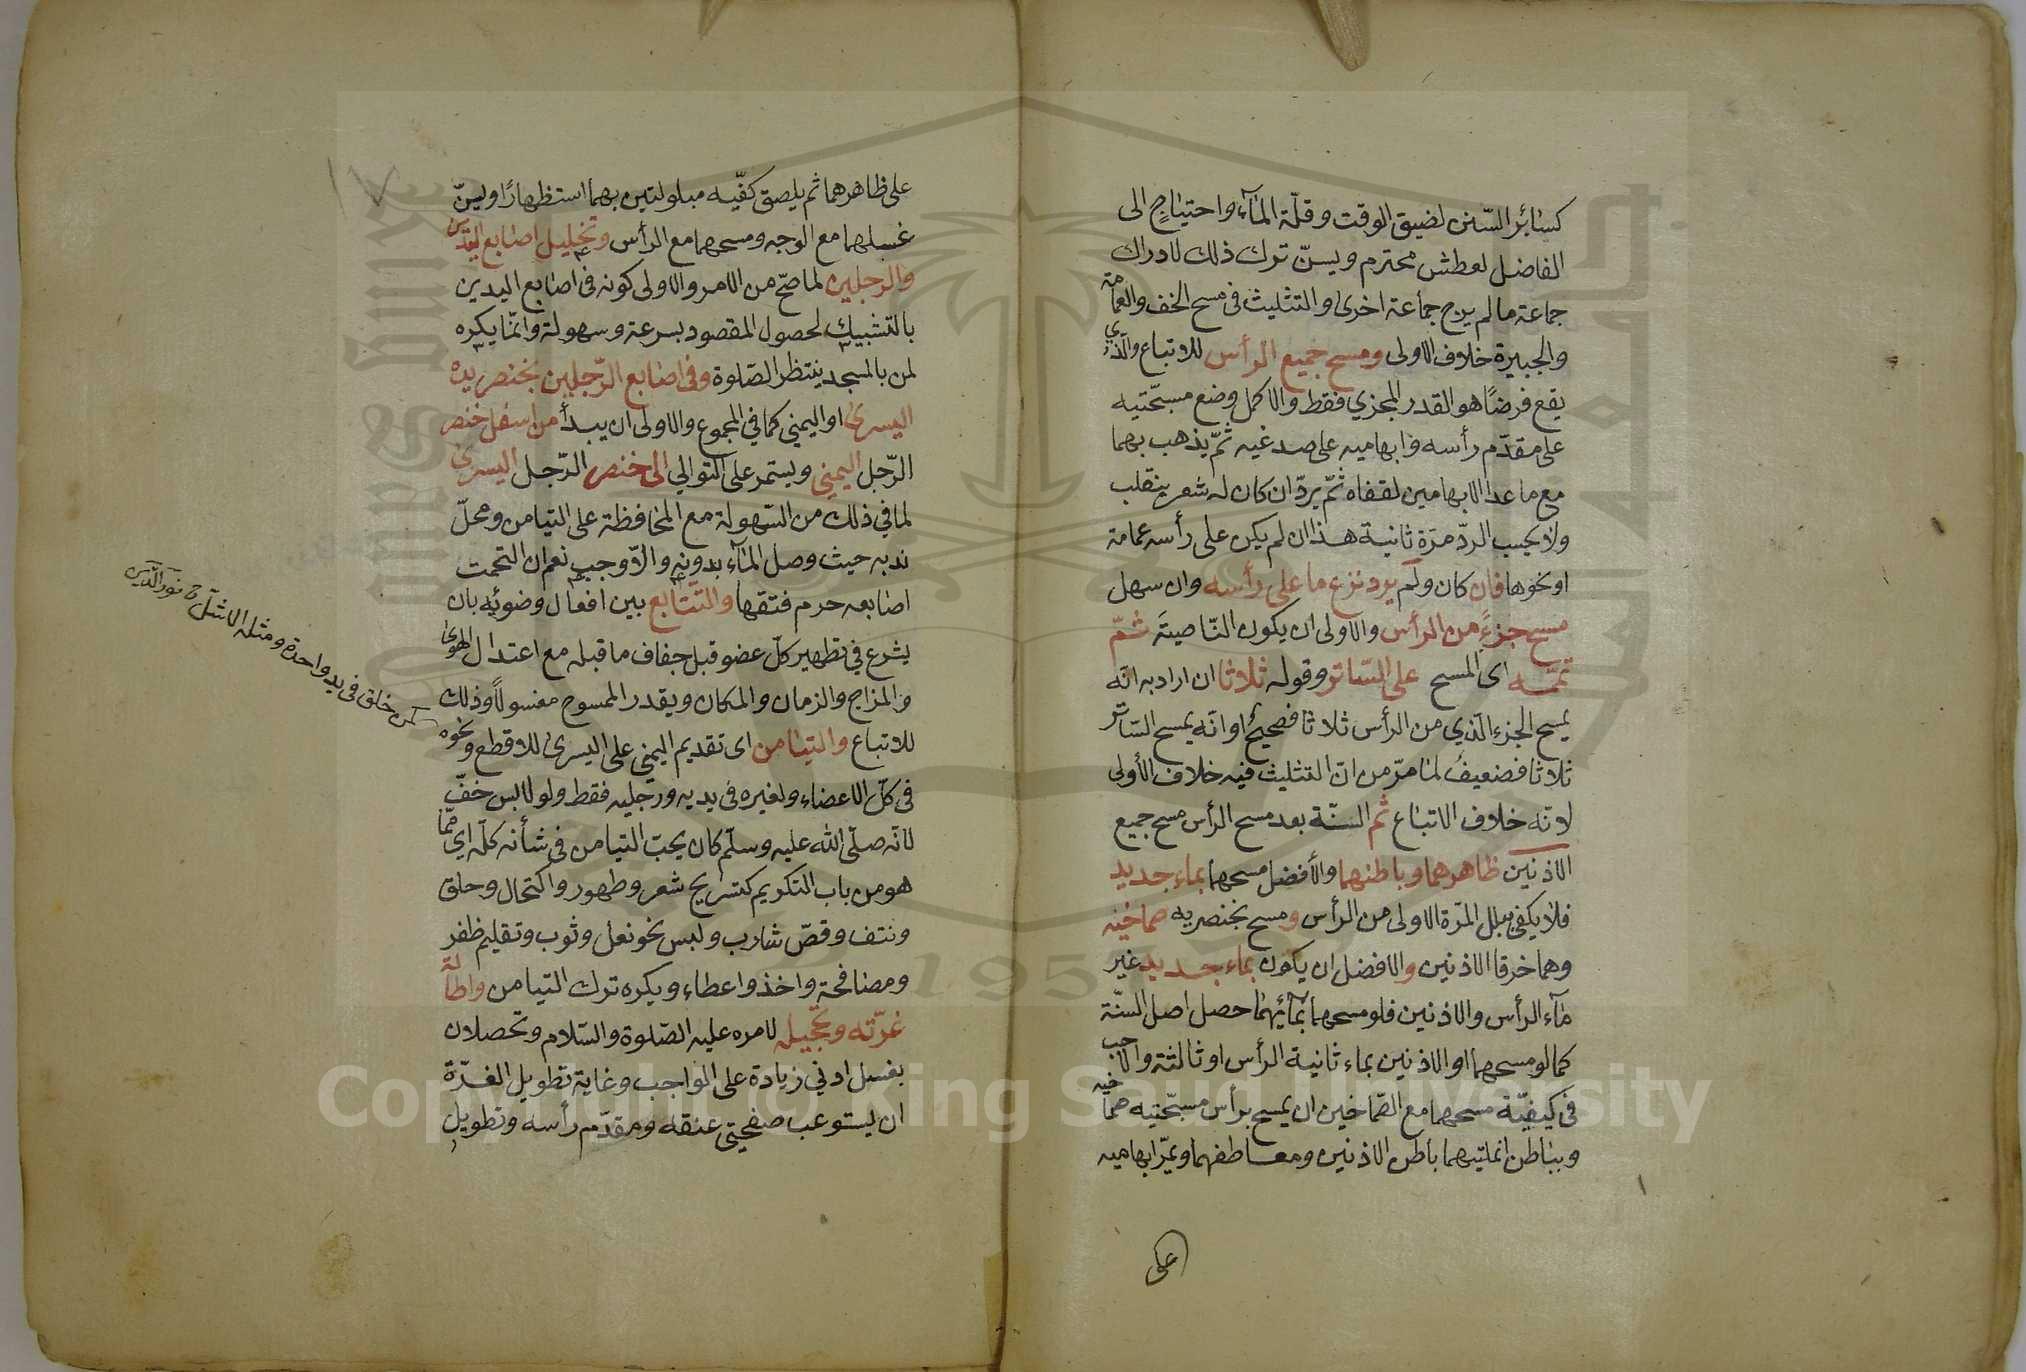 كسائر السّنن لضيق الوقت وقلّة المآء واحتياجٍ الى
الفاضل لعطش محترم ويسنّ ترك ذلك لادراك
جماعة مالم يرج جماعة اخرى والتثليث فى مسح الخف والعمامة
والجبيرة خلاف الاولى ومسح جميع الرأس للاتباع والّذي
يقع فرضًا هو القدر المجزي فقط والاكمل وضع مسبّحتيه
على مقدّم رأسه وابهاميه على صدغيه ثمّ يذهب بهما
مع ماعدا الابهامين لقفاه ثمّ يردّ ان كان له شعر ينقلب
ولا يحسب الردّ مرّة ثانية هذا ان لم يكن على رأسه عمامة
او نحوها فان كان ولم يرد نزع ما على رأسه وان سهل
مسح جزءً من الرأس والاولى ان يكون النّاصيةَ ثمّ
تمّمه اى المسح على السّاتر وقوله ثلاثا ان اراد به انّه
يمسح الجزء الّذي من الرأس ثلاثا فصحيحٌ او انّه يمسح السّاتر
ثلاثا فضعيفٌ لما مرّ من انّ التثليث فيه خلاف الأولى
لانّه خلاف الاتباع ثم السنّة بعد مسح الرأس مسح جميع
الاذنين ظاهرهما وباطنهما والأفضل مسحهما بماء جديد
فلا يكفى ببلل المرّة الاولى من الرأس ومسح بخنصريه صماخيه
وهما خرقا الاذنين والافضل ان يكون بماء جديد غير
مآء الرأس والاذنين فلو مسحهما بمآئهما حصل اصل السنّة
كما لو مسحهما او الاذنين بماء ثانية الرأس او ثالثة والاحب
فى كيفيّة مسحهما مع الصّماخين ان يمسح برأس مسبّحتيه صماخيه
وبباطن انملتيهما باطن الاذنين ومعاطفهما ويمرّ ابهاميه
على
على ظاهرهما ثم يلصق كفّيه مبلولتين بهما استظهارًا ويسنّ
غسلهما مع الوجه ومسحهما مع الرأس وتخليل اصابع اليدين
والرجلين لما صحّ من الامر والاولى كونه فى اصابع اليدين
بالتشبيك لحصول المقصود بسرعة وسهولة وانّما يكره
لمن بالمسجد ينتظر الصّلوة وفى اصابع الرّجلين بخنصر يده
اليسرى او اليمنى كما في المجموع والاولى ان يبدأ من اسفل خنصر
الرّجل اليمنى ويستمر على التوالي الى خنصر الرّجل اليسرى
لما في ذلك من السّهولة مع المحافظة على التيامن ومحلّ
ندبه حيث وصل المآء بدونه والّا وجب نعم ان التحمت
اصابعه حرم فتقها والتّتابع بين افعال وضوئه بان
يشرع في تطهير كلّ عضو قبل جفاف ما قبله مع اعتدال الهوى
والمزاج والزمان والمكان ويقدر الممسوح مغسولًا وذلك
للاتباع والتيامن اى تقديم اليمنى على اليسرى للاقطع ونحوه
فى كلّ الاعضاء ولغيره فى يديه ورجليه فقط ولو لابس خفّ
لانّه صلّى الله عليه وسلّم كان يحبّ التيامن فى شأنه كلّه اي ممّا
هو من باب التكريم كتسريح شعر وطهور واكتحال وحلق
ونتف وقصّ شارب ولبس نحو نعل وثوب وتقليم ظفر
ومصافحة واخذ واعطاء ويكره ترك التيامن واطالة
غرّته وتحجيله لامره عليه الصّلوة والسّلام وتحصلان
بغسل ادنى زيادة على الواجب وغاية تطويل الغرّة
ان يستوعب صفحتى عنقه ومقدّم رأسه وتطويل
كمن خلق فى يد واحدة ومثله الاشلّ ح نور الدّين
Copyright © King Saud University
195